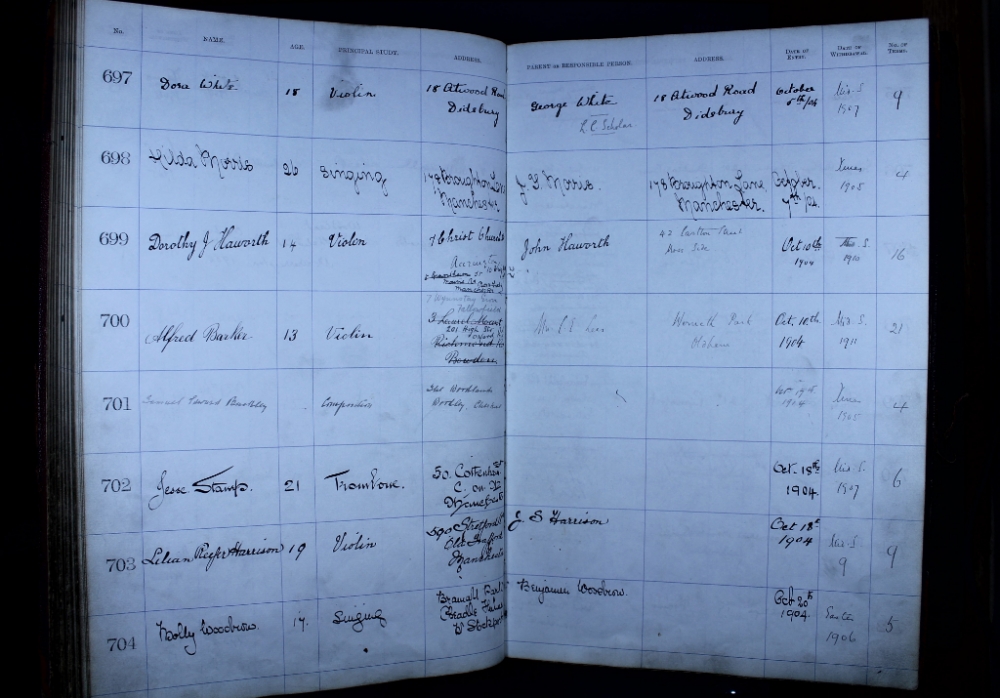 No. NAME. AGE. PRINCIPAL STUDY. ADDRESS. PARENT OR RESPONSIBLE PERSON. ADDRESS. DATE OF ENTRY. DATE OF WITHDRAWAL. NO. OF TERMS.
697 Dora White 18 Violin 18 Atwood Road George White 18 Atwood Road October Mids. S
Didsbury Didsbury 8th/04 1907 9
L.C. Scholar
698 Hilda Morris 26 Singing 178 Broughton Lane J. Morris. 178 Broughton Lane October Xmas 4
Manchester Manchester. 7th 1905
699 Dorothy J Haworth 14 Violin 7 Christ Church John Haworth 42 Street Oct 10th S. 16
Accrington Moss Side 1904 1910
Manchester
700 Alfred Barker 13 Violin 3 Laurel Mount Werneth Park Oct. 10th Mids. S. 21
201 High St. Oldham 1904 1911
Richmond
Bowdon
701 Samuel Composition Woodlands Nov 9th Xmas 4
1904 1905
702 Jesse Stamp. 21 Trombone. 50. Cottenham St Oct. 18th Mids. S. 6
C. on M 1904. 1907
Manchester
703 Lilian Harrison 19 Violin 590 Stretford Rd E S Harrison Oct 18th Mids. S. 9
Old Trafford 1904 9
Manchester
704 Molly Woodrow. 17. Singing Benjamin Woodrow. Oct 20th Easter 5
Cheadle Hulme 1904. 1906
Nr Stockport